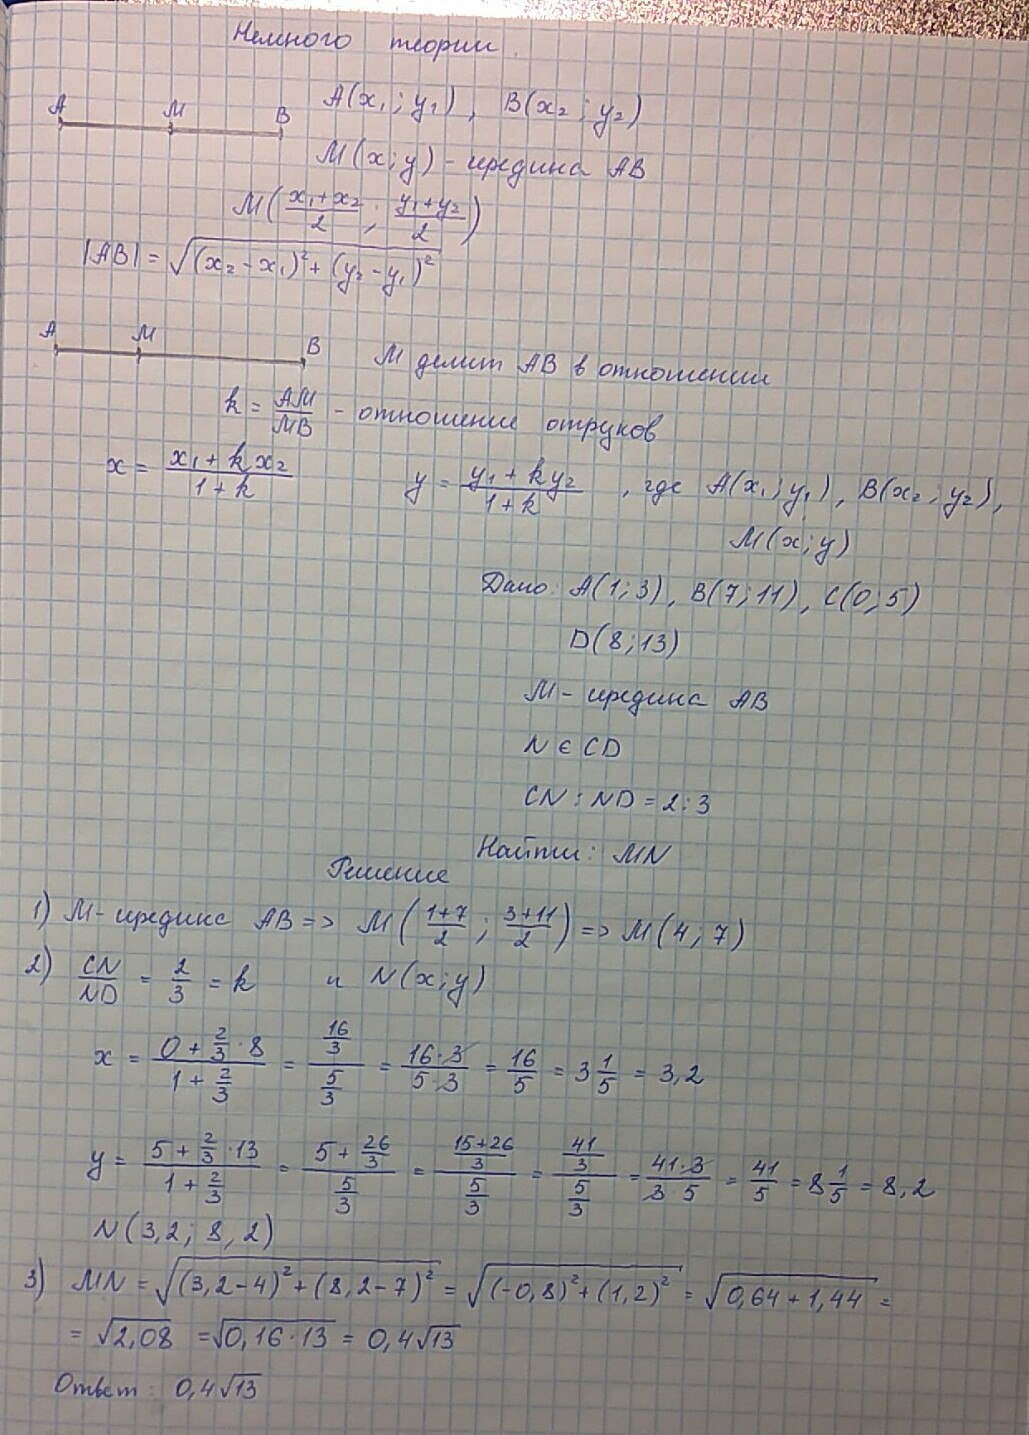 Немного теории.
A M B A(x₁; y₁), B(x₂; y₂)
M(x; y) - середина AB
M((x₁+x₂)/2 ; (y₁+y₂)/2)
|AB| = √((x₂ - x₁)² + (y₂ - y₁)²)
A M B M делит AB в отношении
k = AM/MB - отношение отрезков
x = (x₁ + k x₂)/(1 + k) y = (y₁ + k y₂)/(1 + k), где A(x₁; y₁), B(x₂; y₂),
M(x; y)
Дано: A(1; 3), B(7; 11), C(0; 5)
D(8; 13)
M - середина AB
N ∈ CD
CN : ND = 2:3
Найти: MN
Решение
1) M - середина AB => M((1+7)/2 ; (3+11)/2) => M(4; 7)
2) CN/ND = 2/3 = k и N(x; y)
x = (0 + 2/3 · 8)/(1 + 2/3) = (16/3)/(5/3) = (16·3)/(5·3) = 16/5 = 3 1/5 = 3,2
y = (5 + 2/3 · 13)/(1 + 2/3) = (5 + 26/3)/(5/3) = ((15+26)/3)/(5/3) = (41/3)/(5/3) = (41·3)/(3·5) = 41/5 = 8 1/5 = 8,2
N(3,2; 8,2)
3) MN = √((3,2-4)² + (8,2-7)²) = √((-0,8)² + (1,2)²) = √(0,64 + 1,44) =
= √2,08 = √(0,16·13) = 0,4√13
Ответ: 0,4√13